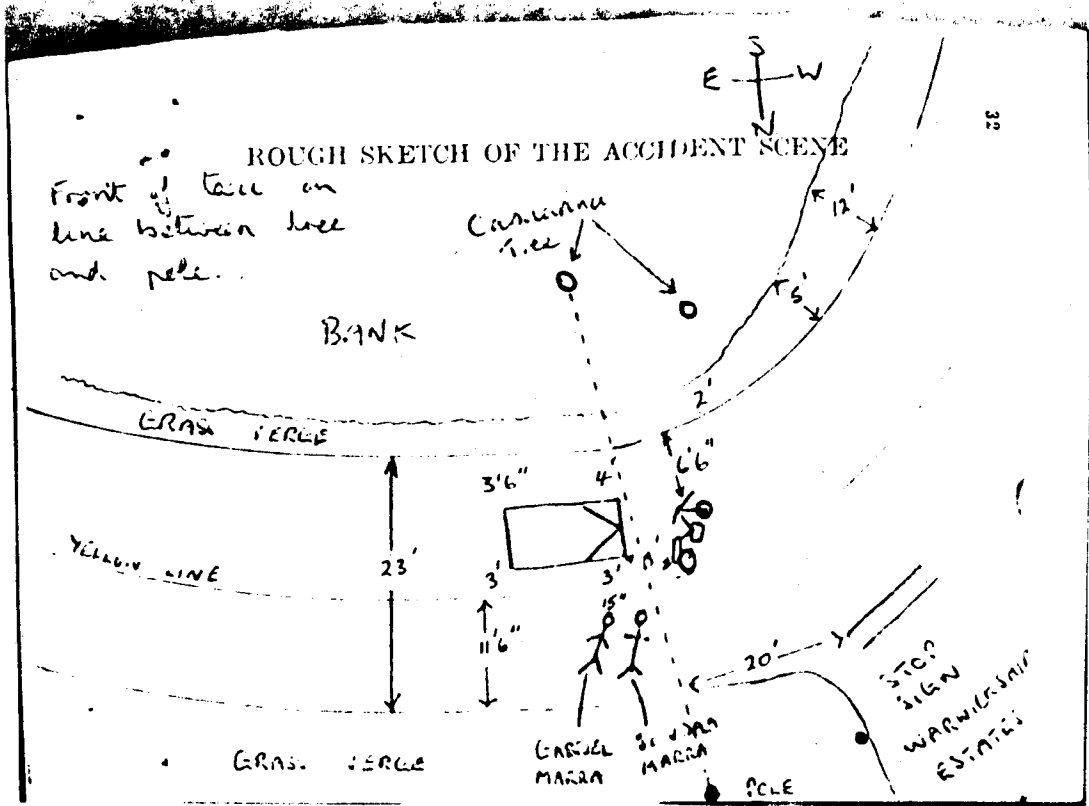 32
S
E W
N
ROUGH SKETCH OF THE ACCIDENT SCENE
Front of on
line between tree
and pole.
Casuarina
Tree
12'
5'
BANK
2'
GRASS VERGE
6'6"
4'
3'6"
YELLOW LINE
23'
3'
3'
15"
11'6"
20'
STOP
SIGN
WARWICKSHIRE
ESTATES
MARRA
MARRA
GRASS VERGE
POLE